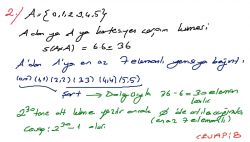 2-) A={0,1,2,3,4,5}
A dan A ya kartezyen çarpım kümesi
s(AxA) = 6.6 = 36
A'dan A'ya en az 7 elemanlı yansıyan bağıntı,
(0,0) (1,1) (2,2) (3,3) (4,4) (5,5)
Şart → Dolayısıyla 36-6=30 eleman kalır
2³⁰ tane alt küme yazılır ancak Ø
(en az 7 elemanlı)
Cevap: 2³⁰-1 olur.
CEVAP: B